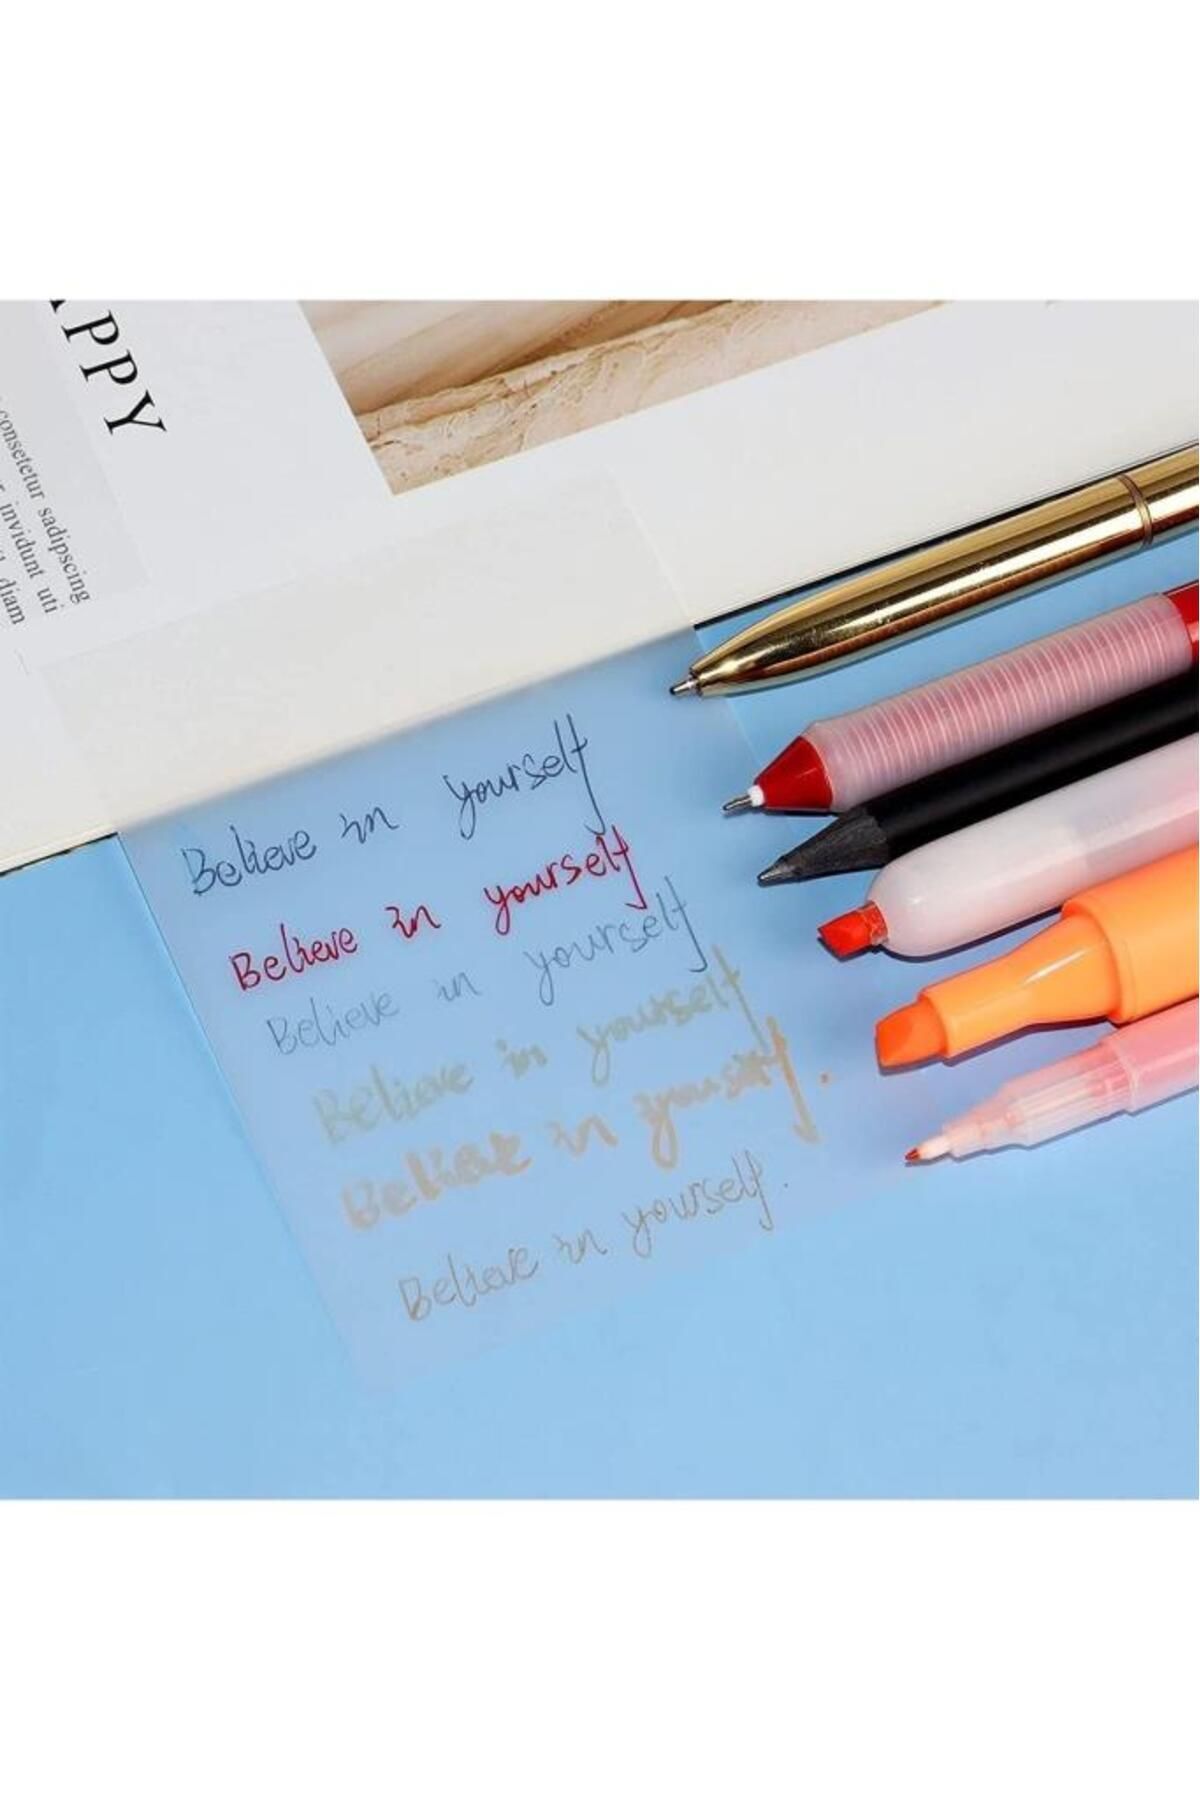 APPY
consetetur sadipscing
invidunt uti
diam
Believe in yourself
Believe in yourself
Believe in yourself
Believe in yourself
Believe in yourself.
Believe in yourself.